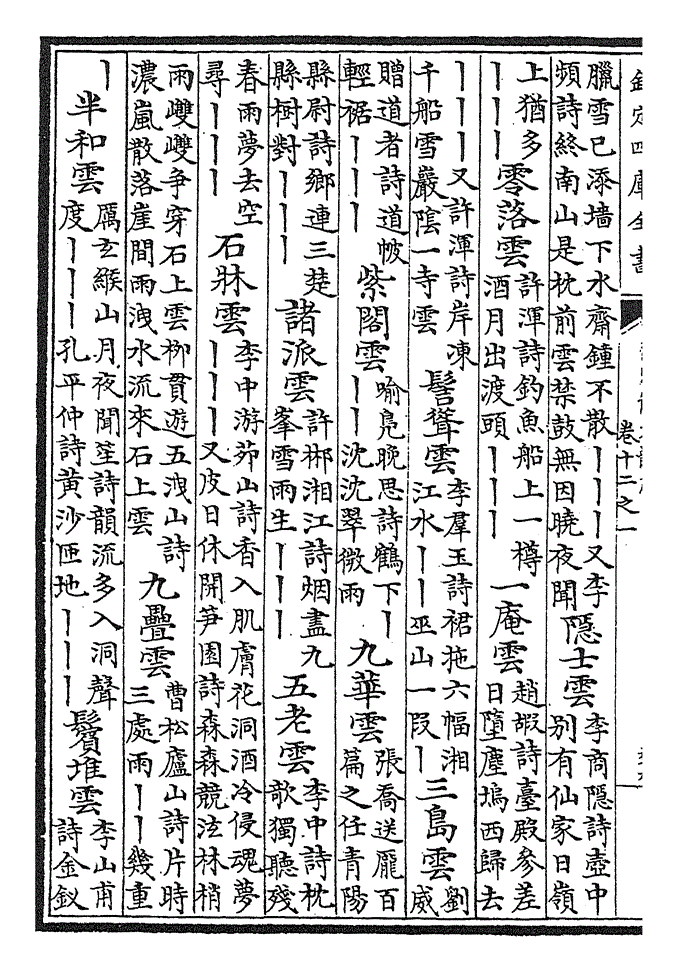 欽定四庫全書
卷十二之一
臘雪已添墻下水齋鍾不散丨丨丨又李
頻詩終南山是枕前雲禁鼓無因曉夜聞
隠士雲
李商隠詩壺中
別有仙家日嶺
上猶多
丨丨丨
零落雲
許渾詩釣魚船上一樽
酒月出渡頭丨丨丨
一庵雲
趙嘏詩臺殿參差
日墮塵塢西歸去
丨丨丨丨又許渾詩岸凍
千船雪巖陰一寺雲
髻聳雲
李羣玉詩裙拖六幅湘
江水丨丨巫山一段丨
三島雲
劉
威
贈道者詩道帔
輕裾丨丨丨
紫閣雲
喻鳧晚思詩鶴下丨
丨丨沈沈翠微雨
九華雲
張喬送龎百
篇之任青陽
縣尉詩鄉連三楚
縣樹對丨丨丨
諸派雲
許郴湘江詩烟盡九
峯雪雨生丨丨丨
五老雲
李中詩枕
欹獨聽殘
春雨夢去空
尋丨丨丨
石牀雲
李中游茆山詩香入肌膚花洞酒冷侵魂夢
丨丨丨又皮日休開笋園詩森森競泫林梢
雨争穿石上雲柳貫遊五洩山詩
濃嵐散落崖間雨洩水流來石上雲
九疊雲
曹松廬山詩片時
三處雨丨丨幾重
丨
半和雲
厲玄緱山月夜聞笙詩韻流多入洞聲
度丨丨丨孔平仲詩黄沙匝地丨丨丨
鬢堆雲
李山甫
詩金釵